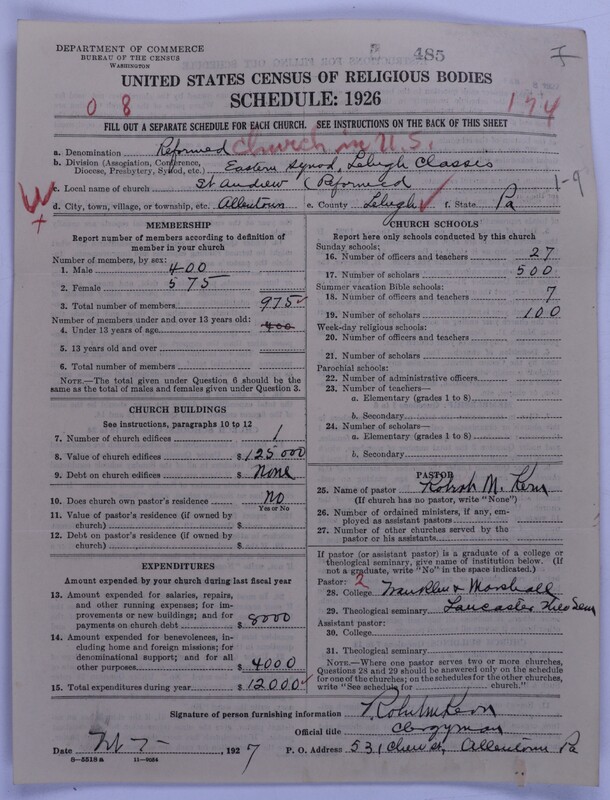 DEPARTMENT OF COMMERCE
BUREAU OF THE CENSUS
WASHINGTON
485
UNITED STATES CENSUS OF RELIGIOUS BODIES
SCHEDULE: 1926
0 8
174
FILL OUT A SEPARATE SCHEDULE FOR EACH CHURCH. SEE INSTRUCTIONS ON THE BACK OF THIS SHEET
a. Denomination Reformed Church in U.S.
b. Division (Association, Conference, Diocese, Presbytery, Synod, etc.) Eastern Synod, Lehigh Classis
c. Local name of church St Andrew (Reformed
1-9
d. City, town, village, or township, etc. Allentown e. County Lehigh f. State Pa
MEMBERSHIP
Report number of members according to definition of member in your church
Number of members, by sex:
1. Male 400
2. Female 575
3. Total number of members 975
Number of members under and over 13 years old:
4. Under 13 years of age 400
5. 13 years old and over
6. Total number of members
NOTE.—The total given under Question 6 should be the same as the total of males and females given under Question 3.
CHURCH BUILDINGS
See instructions, paragraphs 10 to 12
7. Number of church edifices 1
8. Value of church edifices $ 125000
9. Debt on church edifices $ None
10. Does church own pastor's residence No
Yes or No
11. Value of pastor's residence (if owned by church) $
12. Debt on pastor's residence (if owned by church) $
EXPENDITURES
Amount expended by your church during last fiscal year
13. Amount expended for salaries, repairs, and other running expenses; for improvements or new buildings; and for payments on church debt $ 8000
14. Amount expended for benevolences, including home and foreign missions; for denominational support; and for all other purposes $ 4000
15. Total expenditures during year $ 12000
CHURCH SCHOOLS
Report here only schools conducted by this church
Sunday schools:
16. Number of officers and teachers 27
17. Number of scholars 500
Summer vacation Bible schools:
18. Number of officers and teachers 7
19. Number of scholars 100
Week-day religious schools:
20. Number of officers and teachers
21. Number of scholars
Parochial schools:
22. Number of administrative officers
23. Number of teachers—
a. Elementary (grades 1 to 8)
b. Secondary
24. Number of scholars—
a. Elementary (grades 1 to 8)
b. Secondary
PASTOR
25. Name of pastor Robert M. Kern
(If church has no pastor, write "None")
26. Number of ordained ministers, if any, employed as assistant pastors
27. Number of other churches served by the pastor or his assistants
If pastor (or assistant pastor) is a graduate of a college or theological seminary, give name of institution below. (If not a graduate, write "No" in the space indicated.)
Pastor: 2
28. College Franklin & Marshall
29. Theological seminary Lancaster Theo Sem
Assistant pastor:
30. College
31. Theological seminary
NOTE.—Where one pastor serves two or more churches, Questions 28 and 29 should be answered only on the schedule for one of the churches; on the schedules for the other churches, write "See schedule for church."
Signature of person furnishing information Robt M Kern
Official title Clergyman
Date 1927 P. O. Address 531 Chew St, Allentown Pa
8-5518 a 11-9024